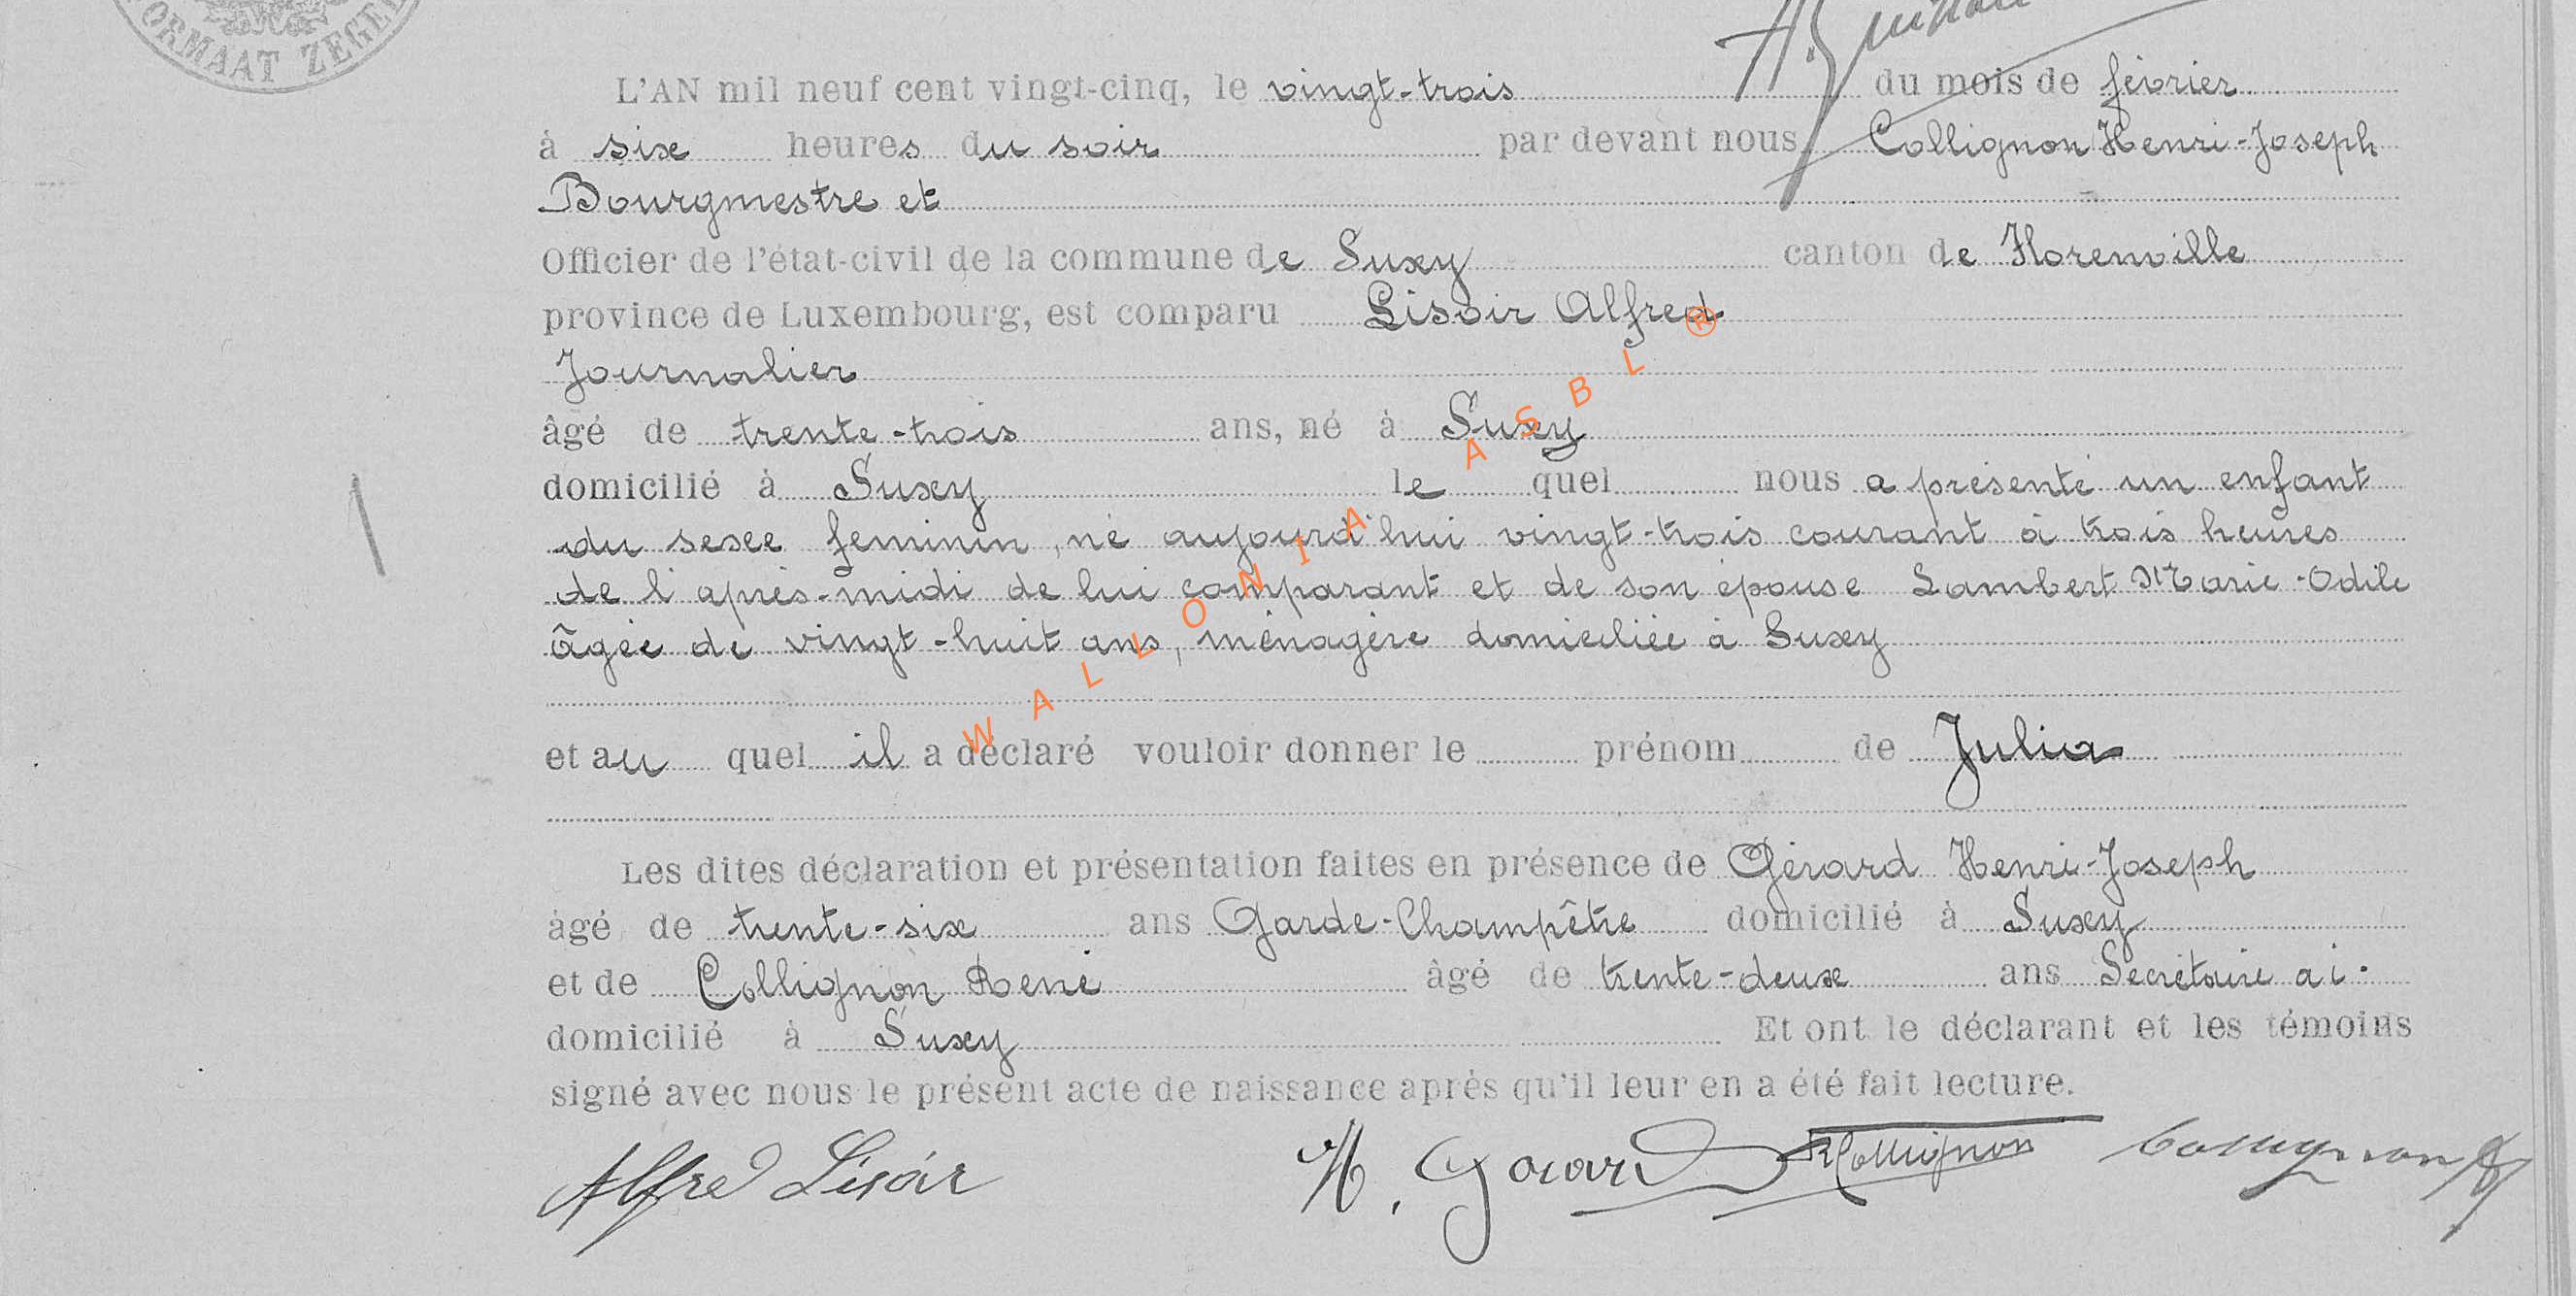 FORMAAT ZEGEL
L'AN mil neuf cent vingt-cinq, le vingt-trois du mois de février
à six heures du soir par devant nous Collignon Henri-Joseph
Bourgmestre et
Officier de l'état-civil de la commune de Suxy canton de Florenville
province de Luxembourg, est comparu Lisoir Alfred
Journalier
âgé de trente-trois ans, né à Suxy
domicilié à Suxy le quel nous a présenté un enfant
du sexe feminin, né aujourd'hui vingt-trois courant à trois heures
de l'après-midi de lui comparant et de son épouse Lambert Marie-Odile
âgée de vingt-huit ans, ménagère domiciliée à Suxy
et au quel il a déclaré vouloir donner le prénom de Julia
Les dites déclaration et présentation faites en présence de Gérard Henri-Joseph
âgé de trente-six ans Garde-Champêtre domicilié à Suxy
et de Collignon René âgé de trente-deux ans Secrétaire ai.
domicilié à Suxy Et ont le déclarant et les témoins
signé avec nous le présent acte de naissance après qu'il leur en a été fait lecture.
Alfred Lisoir H. Gérard R Collignon Collignon
WALLONIA ASBL ®